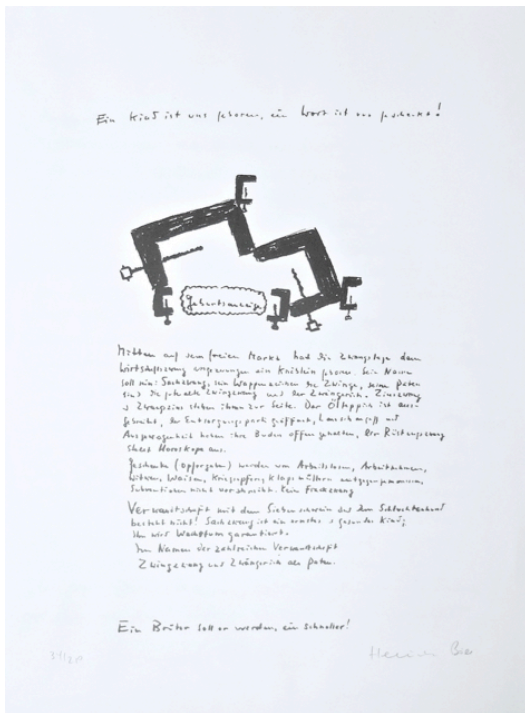 Ein Kind ist uns geboren, ein Wort ist uns geschenkt!
Geburtsanzeige
Mitten auf dem freien Markt hat die Zwangslage dem
Wirtschaftszwang ein Knäblein geboren. Sein Name
soll sein: Sachzwang, sein Wappenzeichen die Zwinge, seine Paten
sind die Zwingzwang und der Zwingerich. Zinszwang
stehen ihm zur Seite. Der Ölteppich ist aus-
gebreitet, der Entsorgungspark geöffnet, Lauschangriff und
Ausgewogenheit haben ihre Buden offen gehalten, der Rüstungszwang
stellt Horoskope aus.
Geschenke (Opfergaben) werden von Arbeitslosen, Arbeitnehmern,
Witwen, Waisen, Kriegsopfern, entgegengenommen,
Subventionen nicht verschmäht. Kein Frackzwang
Verwandtschaft mit dem Siebenschwein aus dem
besteht nicht! Sachzwang ist ein ernstes gesundes Kind,
ihm wird Wachstum garantiert.
Im Namen der zahlreichen Verwandtschaft
Zwingzwang und Zwängerich als Paten.
Ein Brüter soll er werden, ein schneller!